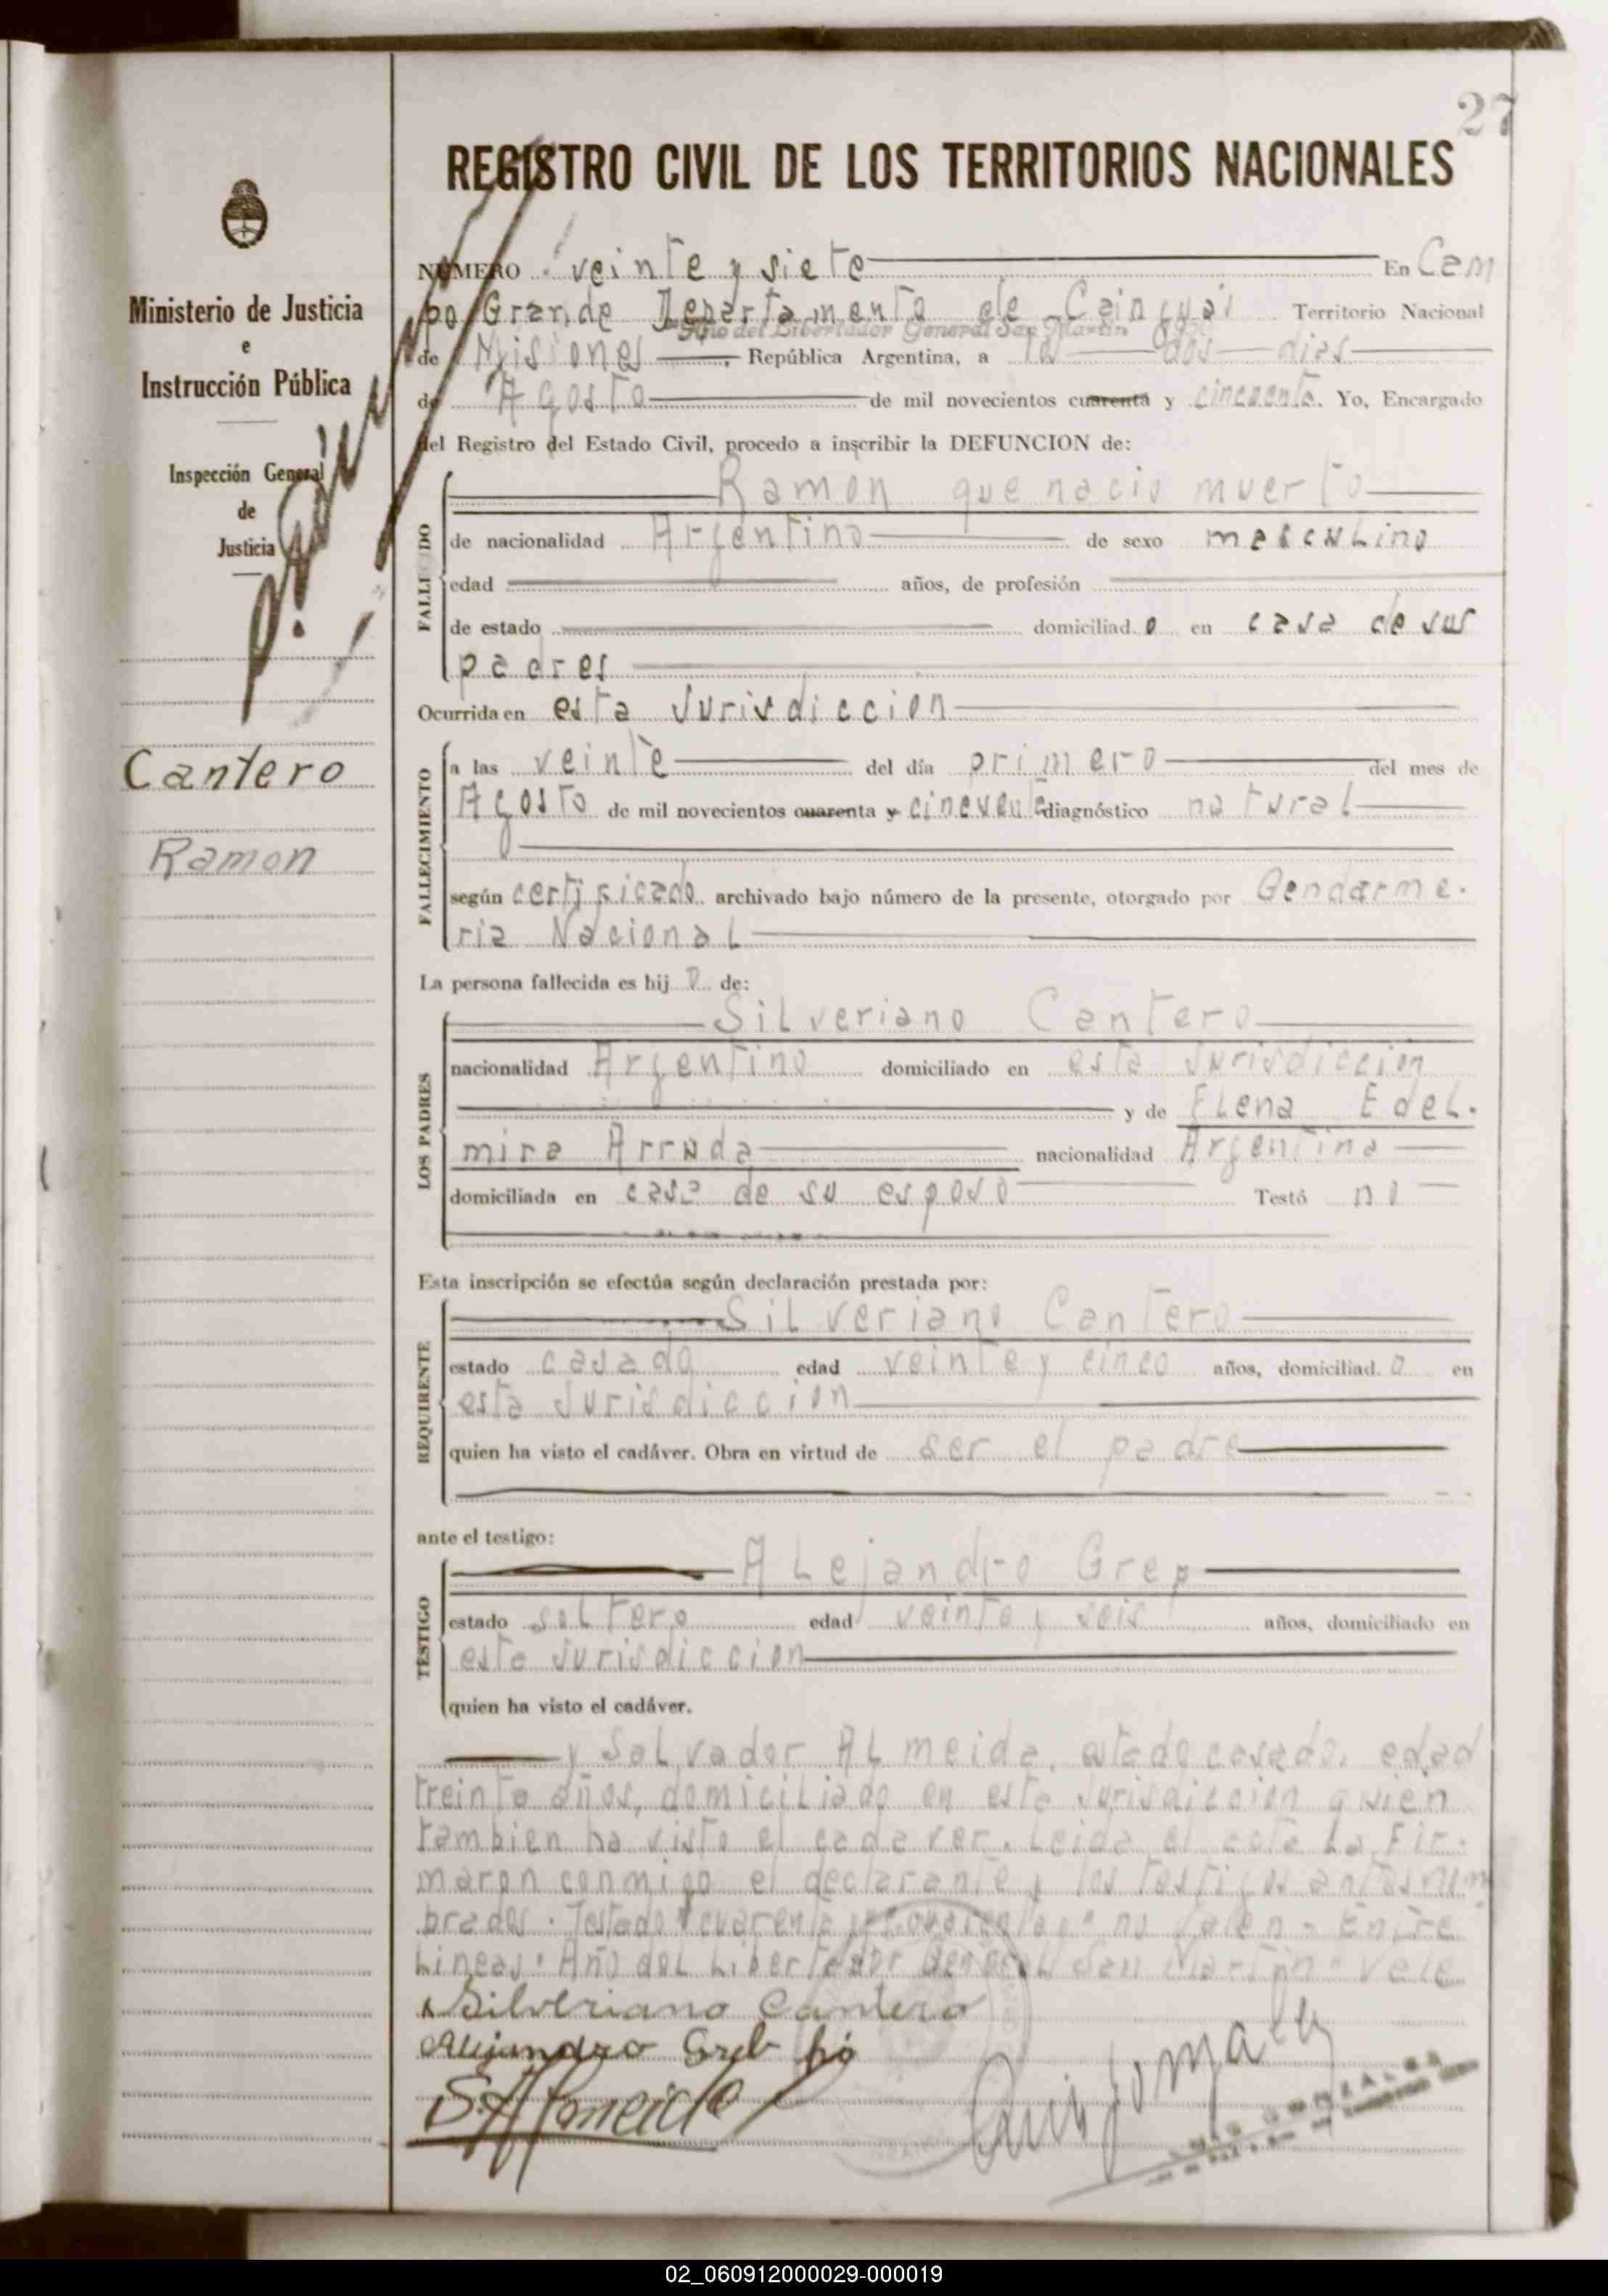 27
REGISTRO CIVIL DE LOS TERRITORIOS NACIONALES
Ministerio de Justicia
e
Instrucción Pública
Inspección General
de
Justicia
Cantero
Ramon
NUMERO veinte y siete En Cam
po Grande Departamento de Cainguás Territorio Nacional
Año del Libertador General San Martín
de Misiones, República Argentina, a los dos dias
de Agosto de mil novecientos cuarenta y cincuenta. Yo, Encargado
del Registro del Estado Civil, procedo a inscribir la DEFUNCION de:
FALLECIDO
Ramon que nacio muerto
de nacionalidad Argentino de sexo masculino
edad años, de profesión
de estado domiciliad o en casa de sus
padres
Ocurrida en esta Jurisdiccion
FALLECIMIENTO
a las veinte del día primero del mes de
Agosto de mil novecientos cuarenta y cincuenta diagnóstico natural
según certificado archivado bajo número de la presente, otorgado por Gendarme-
ria Nacional
La persona fallecida es hij o de:
LOS PADRES
Silveriano Cantero
nacionalidad Argentino domiciliado en esta Jurisdiccion
y de Elena Edel-
mira Arruda nacionalidad Argentina
domiciliada en casa de su esposo Testó no
Esta inscripción se efectúa según declaración prestada por:
REQUIRENTE
Silveriano Cantero
estado casado edad veinte y cinco años, domiciliad o en
esta Jurisdiccion
quien ha visto el cadáver. Obra en virtud de ser el padre
ante el testigo:
TESTIGO
Alejandro Grep
estado soltero edad veinte y seis años, domiciliado en
esta Jurisdiccion
quien ha visto el cadáver.
y Salvador Almeida, estado casado, edad
treinta años, domiciliado en esta Jurisdiccion quien
tambien ha visto el cadaver. Leida el acta la fir-
maron conmigo el declarante y los testigos antes nom
brados. Testado "cuarenta y" "cuarenta" no valen - Entre
Lineas: Año del Libertador General San Martin - Vale
Silveriano Cantero
Alejandro
S. Almeida
02_060912000029-000019